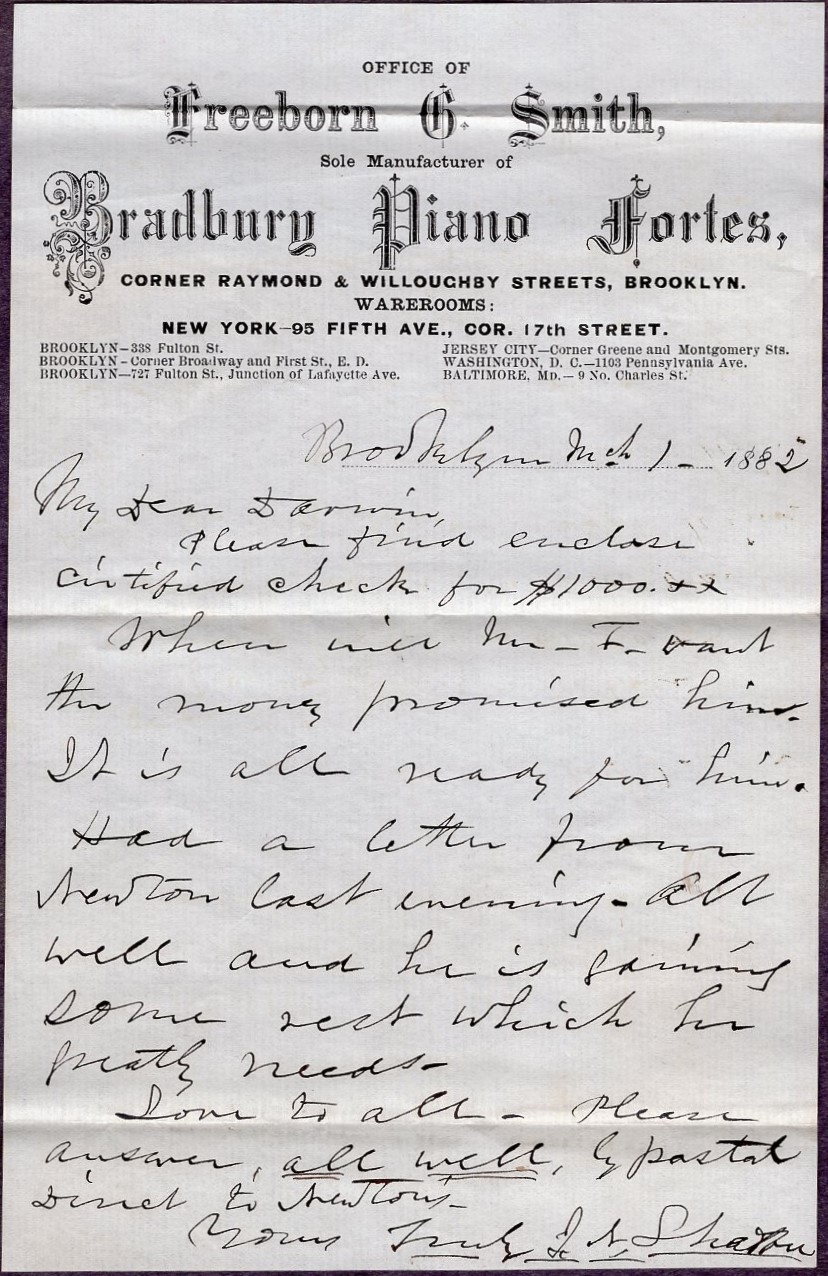 OFFICE OF
Freeborn G. Smith,
Sole Manufacturer of
Bradbury Piano Fortes,
CORNER RAYMOND & WILLOUGHBY STREETS, BROOKLYN.
WAREROOMS:
NEW YORK—95 FIFTH AVE., COR. 17th STREET.
BROOKLYN—338 Fulton St.
BROOKLYN—Corner Broadway and First St., E. D.
BROOKLYN—727 Fulton St., Junction of Lafayette Ave.
JERSEY CITY—Corner Greene and Montgomery Sts.
WASHINGTON, D. C.—1103 Pennsylvania Ave.
BALTIMORE, MD.—9 No. Charles St.
Brooklyn Mch 1 - 1882
My Dear Darwin,
Please find enclose
certified check for $1000.xx
When will Mr - F - want
the money promised him.
It is all ready for him.
Had a letter from
Newton last evening - All
well and he is gaining
some rest which he
greatly needs -
Love to all - Please
answer, all well, by postal
Direct to Newtons -
Yours Truly